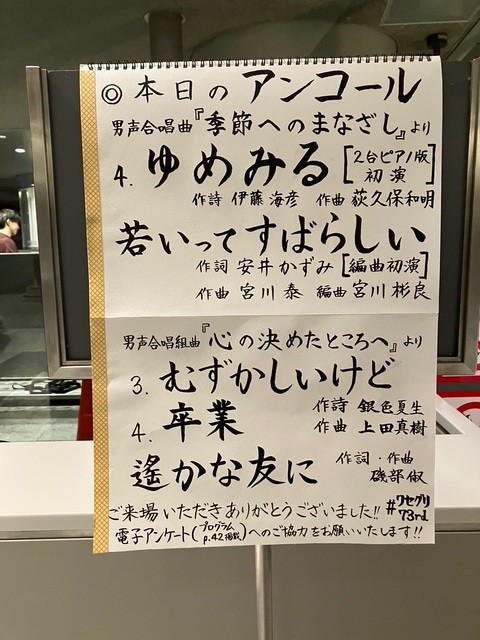 ◎ 本日のアンコール
男声合唱曲『季節へのまなざし』より
4. ゆめみる [2台ピアノ版 初演]
作詩 伊藤海彦 作曲 荻久保和明
若いってすばらしい
作詞 安井かずみ [編曲初演]
作曲 宮川泰 編曲 宮川彬良
男声合唱組曲『心の決めたところへ』より
3. むずかしいけど
4. 卒業
作詩 銀色夏生
作曲 上田真樹
遙かな友に
作詞・作曲
磯部俶
ご来場いただきありがとうございました!! #ワセグリ73rd
電子アンケート(プログラムp.42掲載)へのご協力をお願いいたします!!